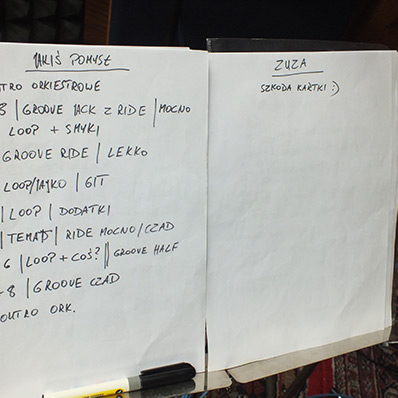 JAKIŚ POMYSŁ
TRO ORKIESTROWE
3 | GROOVE JACK Z RIDE | MOCNO
LOOP + SMYKI
GROOVE RIDE | LEKKO
LOOP/JAJKO | GIT
| LOOP | DODATKI
| TEMAT | RIDE MOCNO/CZAD
6 | LOOP + COŚ? || GROOVE HALF
- 8 | GROOVE CZAD
OUTRO ORK.
ZUZA
SZKODA KARTKI :)